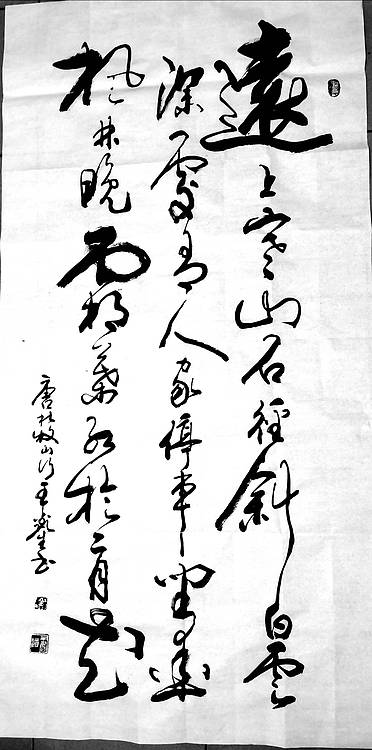 遠上寒山石徑斜白雲
深處有人家停車坐愛
楓林晚霜葉紅於二月花
唐杜牧山行王書